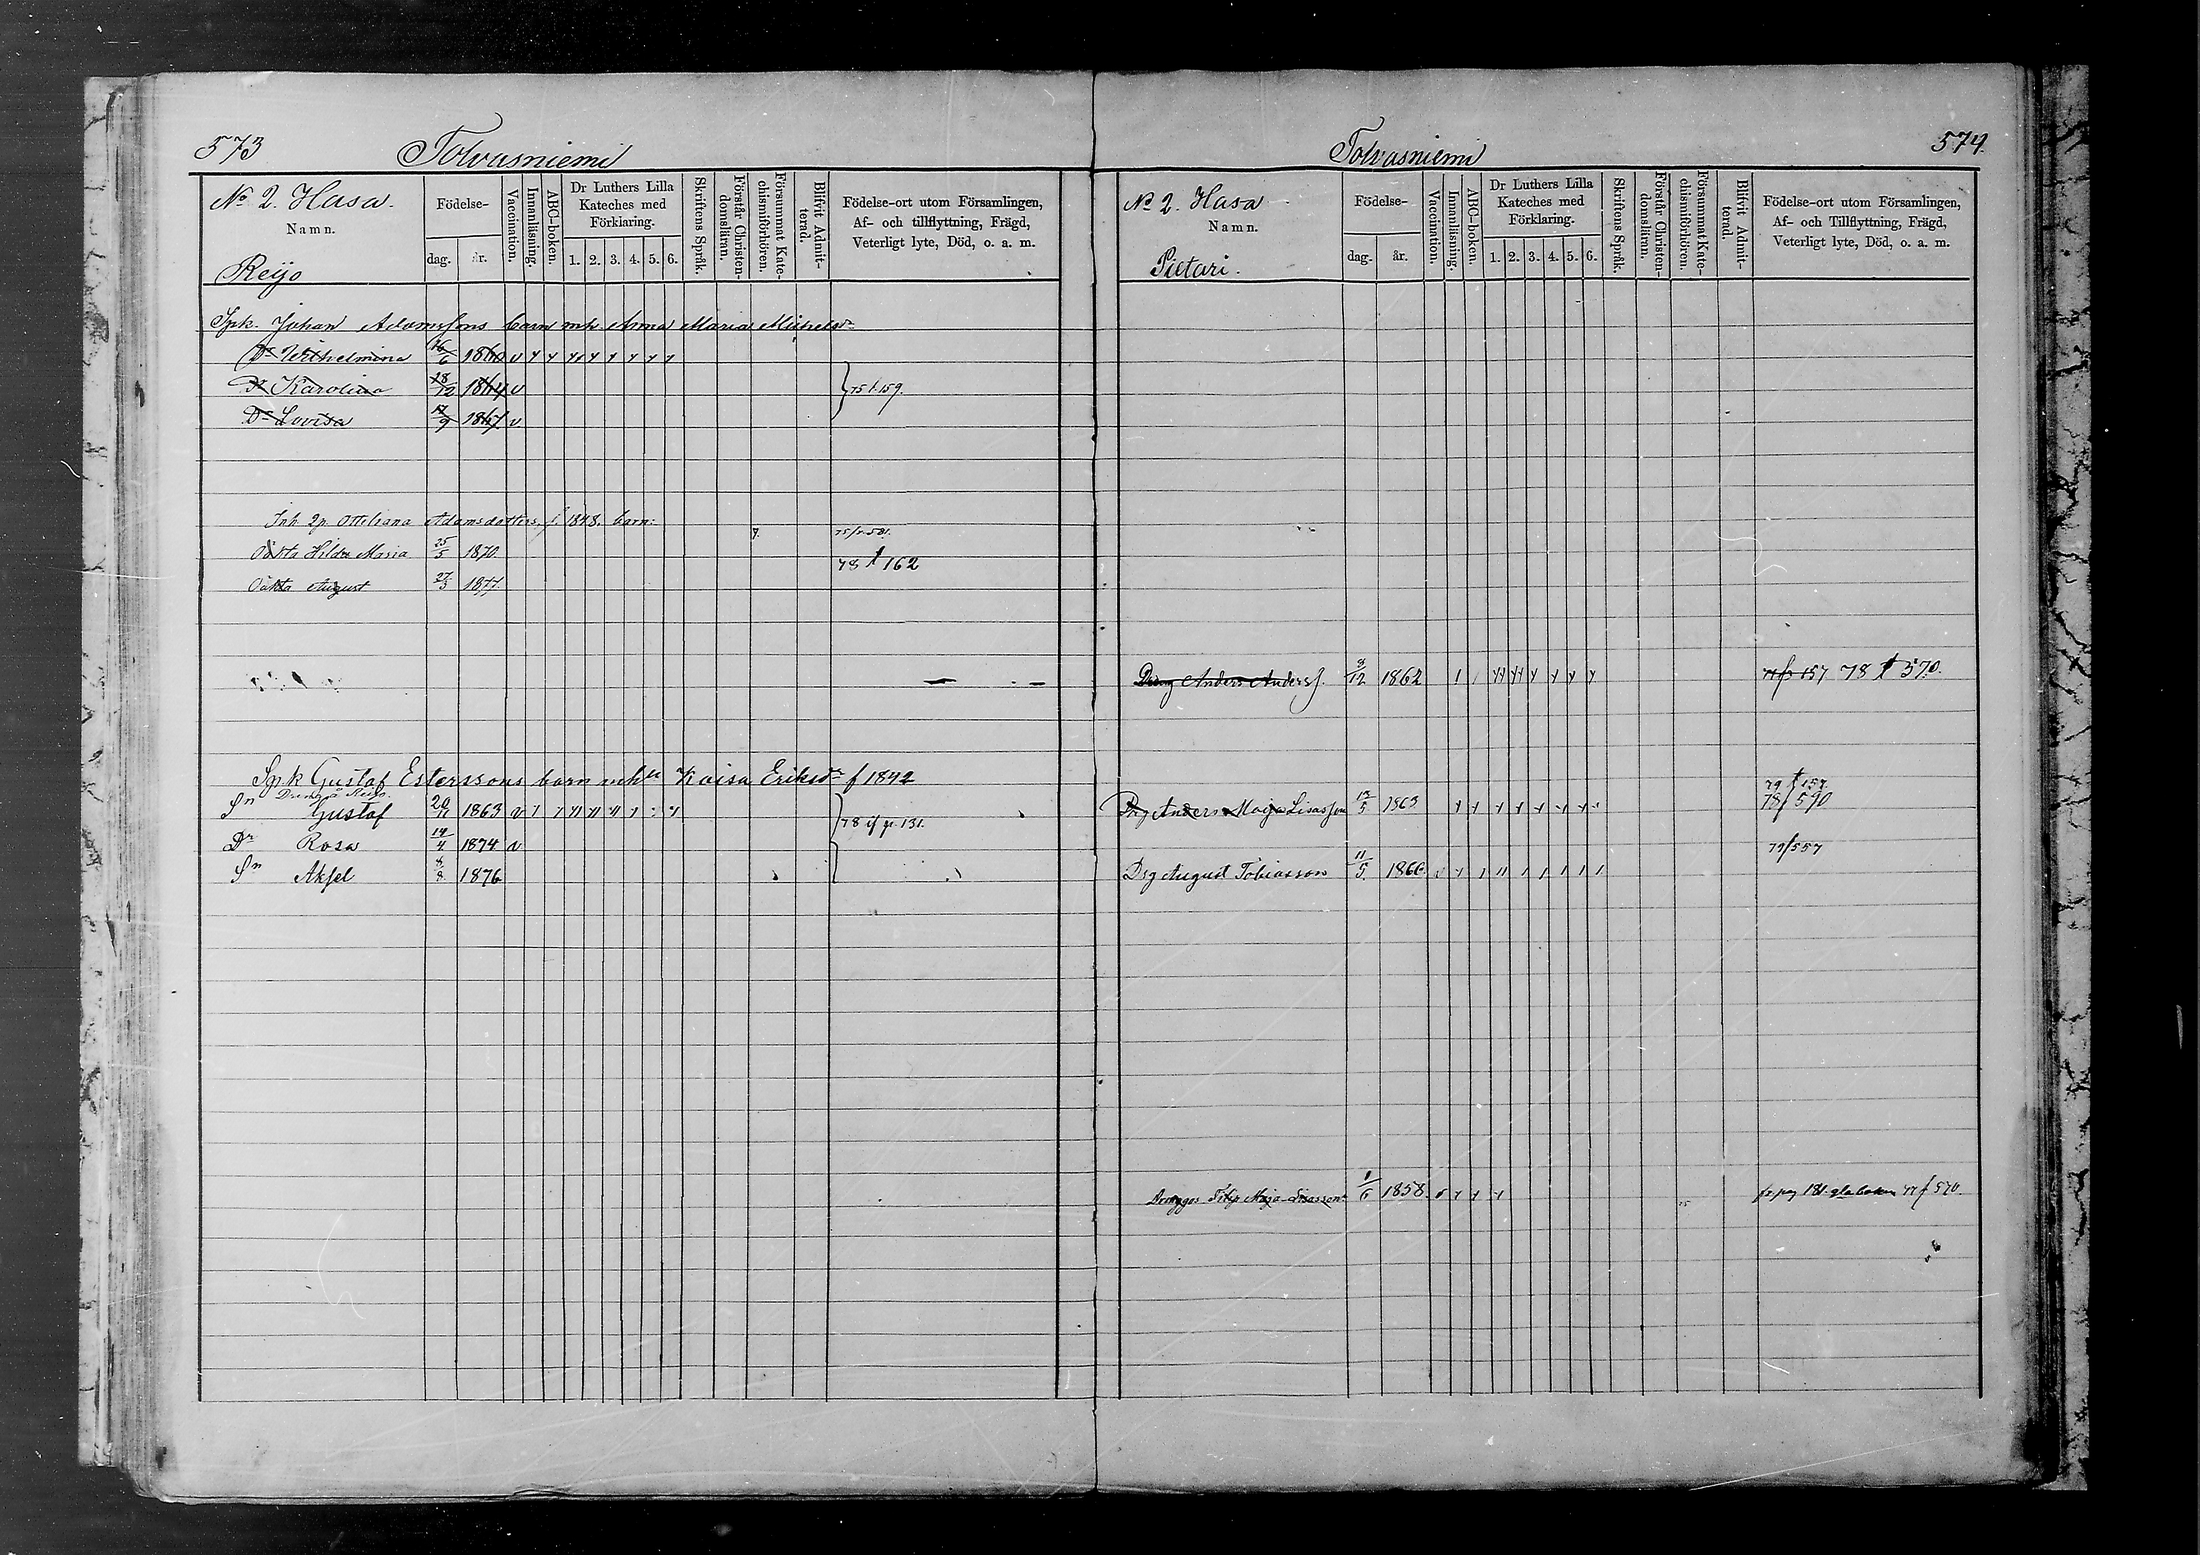 573 Tolvasniemi
No 2. Hasa.
Namn.
Reijo
Födelse-
dag. år.
Vaccination.
Innanläsning.
ABC-boken.
Dr Luthers Lilla
Kateches med
Förklaring.
1. 2. 3. 4. 5. 6.
Skriftens Språk.
Förstår Christen-
domsläran.
Försummat Kate-
chismiförhören.
Blifvit Admit-
terad.
Födelse-ort utom Församlingen,
Af- och tillflyttning, Frägd,
Veterligt lyte, Död, o. a. m.
Spk. Johan Adamssons barn mh. Anna Maria Michelsdr
Dr Wilhelmina 16/6 1860 v
Dr Karolina 18/12 1864 v 75 f 159.
Dr Lovisa 17/9 1867. v
Inh. Ottiliana Adamsdotters f. 1848. barn:
75/ 501.
Oäkta Hilda Maria 25/5 1870.
78 f 162
Oäkta August 27/3 1877.
Spk Gustaf Esterssons barn mh Kaisa Eriksdr f 1842
Sn Gustaf 20/11 1863 v
78 if p. 131.
Dr Rosa 14/4 1874 v
Sn Aksel 8/8 1876
Tolvasniemi 574.
No 2. Hasa
Namn.
Pietari.
Födelse-
dag. år.
Vaccination.
Innanläsning.
ABC-boken.
Dr Luthers Lilla
Kateches med
Förklaring.
1. 2. 3. 4. 5. 6.
Skriftens Språk.
Förstår Christen-
domsläran.
Försummat Kate-
chismiförhören.
Blifvit Admit-
terad.
Födelse-ort utom Församlingen,
Af- och Tillflyttning, Frägd,
Veterligt lyte, Död, o. a. m.
Dreng Anders Anderss. 9/12 1862 157 78 f 570.
79 f 157
Drg Anders Maija Lisasson 13/5 1863 78 f 590
79/557
Drg August Tobiasson 11/5. 1866. v
Drenggos. Filip Maja Lisasson 1/6 1858. fr. pag 181. gla boken 77 f 570.